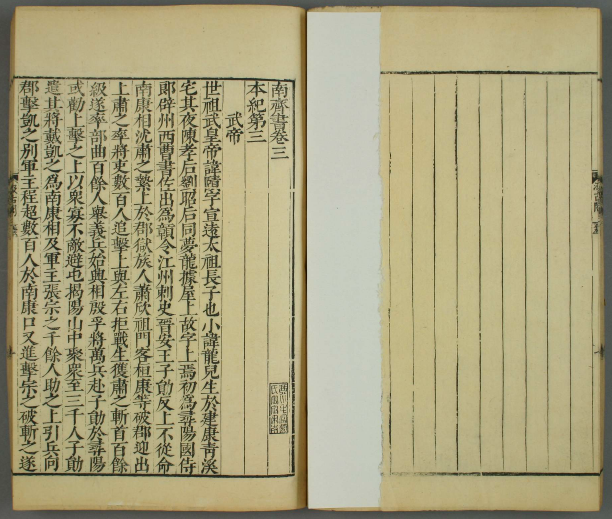 南齊書卷三
本紀第三
武帝
世祖武皇帝諱賾字宣遠太祖長子也小諱龍兒生於建康青溪
宅其夜陳孝后劉昭后同夢龍據屋上故字上焉初爲尋陽國侍
郎辟州西曹書佐出爲贛令江州刺史晉安王子勛反上不從命
南康相沈肅之縶上於郡獄族人蕭欣祖門客桓康等破郡迎出
上肅之率將吏數百人追擊上與左右拒戰生獲肅之斬首百餘
級遂率部曲百餘人舉義兵始興相殷孚將萬兵赴子勛於尋陽
或勸上擊之上以衆寡不敵避屯揭陽山中聚衆至三千人子勛
遣其將戴凱之爲南康相及軍主張宗之千餘人助之上引兵向
郡擊凱之別軍主程超數百人於南康口又進擊宗之破斬之遂